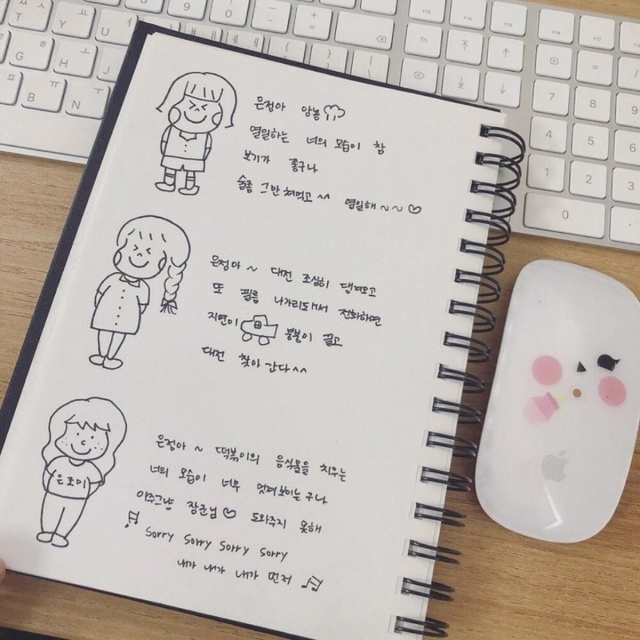 은정아 앙뇽
열일하는 너의 모습이 참
보기가 좋구나
술좀 그만 쳐먹고 ^^ 열일해~~♡
은정아~ 대전 조심히 댕겨오고
또 필름 나가리되서 전화하면
지연이 붕붕이 끌고
대전 찾아 간다^^
은정아~ 떡볶이의 음식물을 치우는
너의 모습이 너무 멋져보이는구나
이주그냥 장군님♡ 도와주지 못해
은조이
♫ Sorry Sorry Sorry Sorry
내가 내가 내가 먼저 ♫